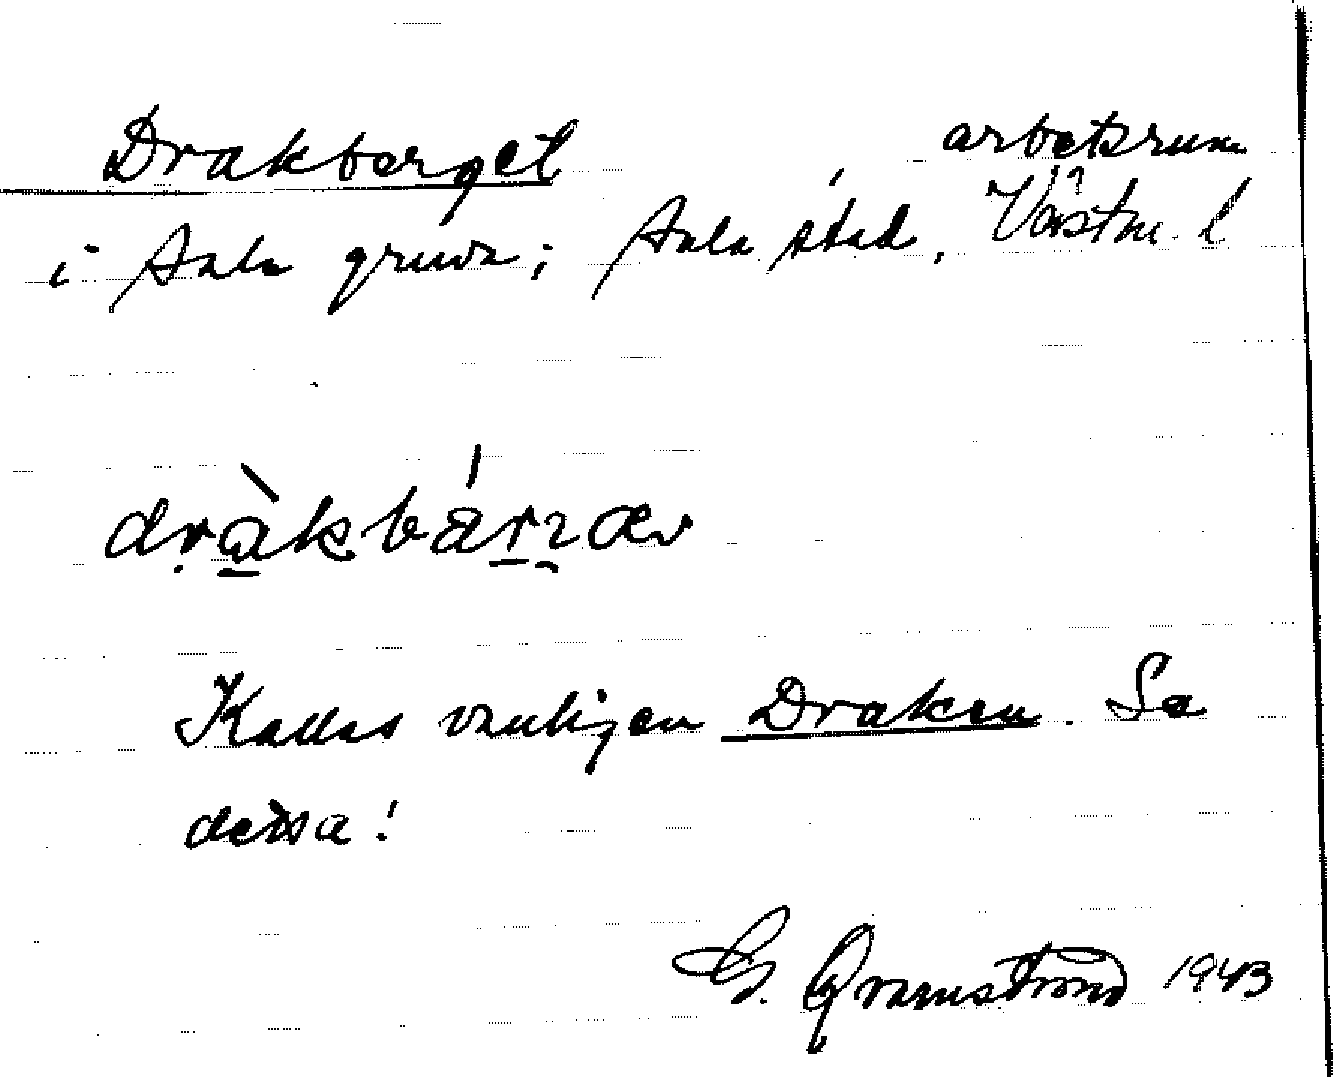 Drakberget arbetsrum
i Sala gruva; Sala stad, Västm. l
dràkbárʒæ
Kallas vanligen Draken. Se
dessa!
G. Qvarnström 1943